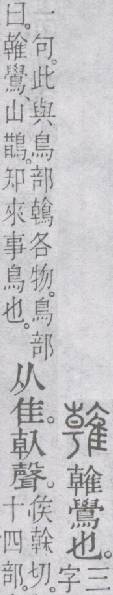 雗雗鷽也。三字
一句。此與鳥部鶾各物。鳥部
曰。雗鷽、山鵲。知來事鳥也。
从隹倝聲。
矦榦切。
十四部。